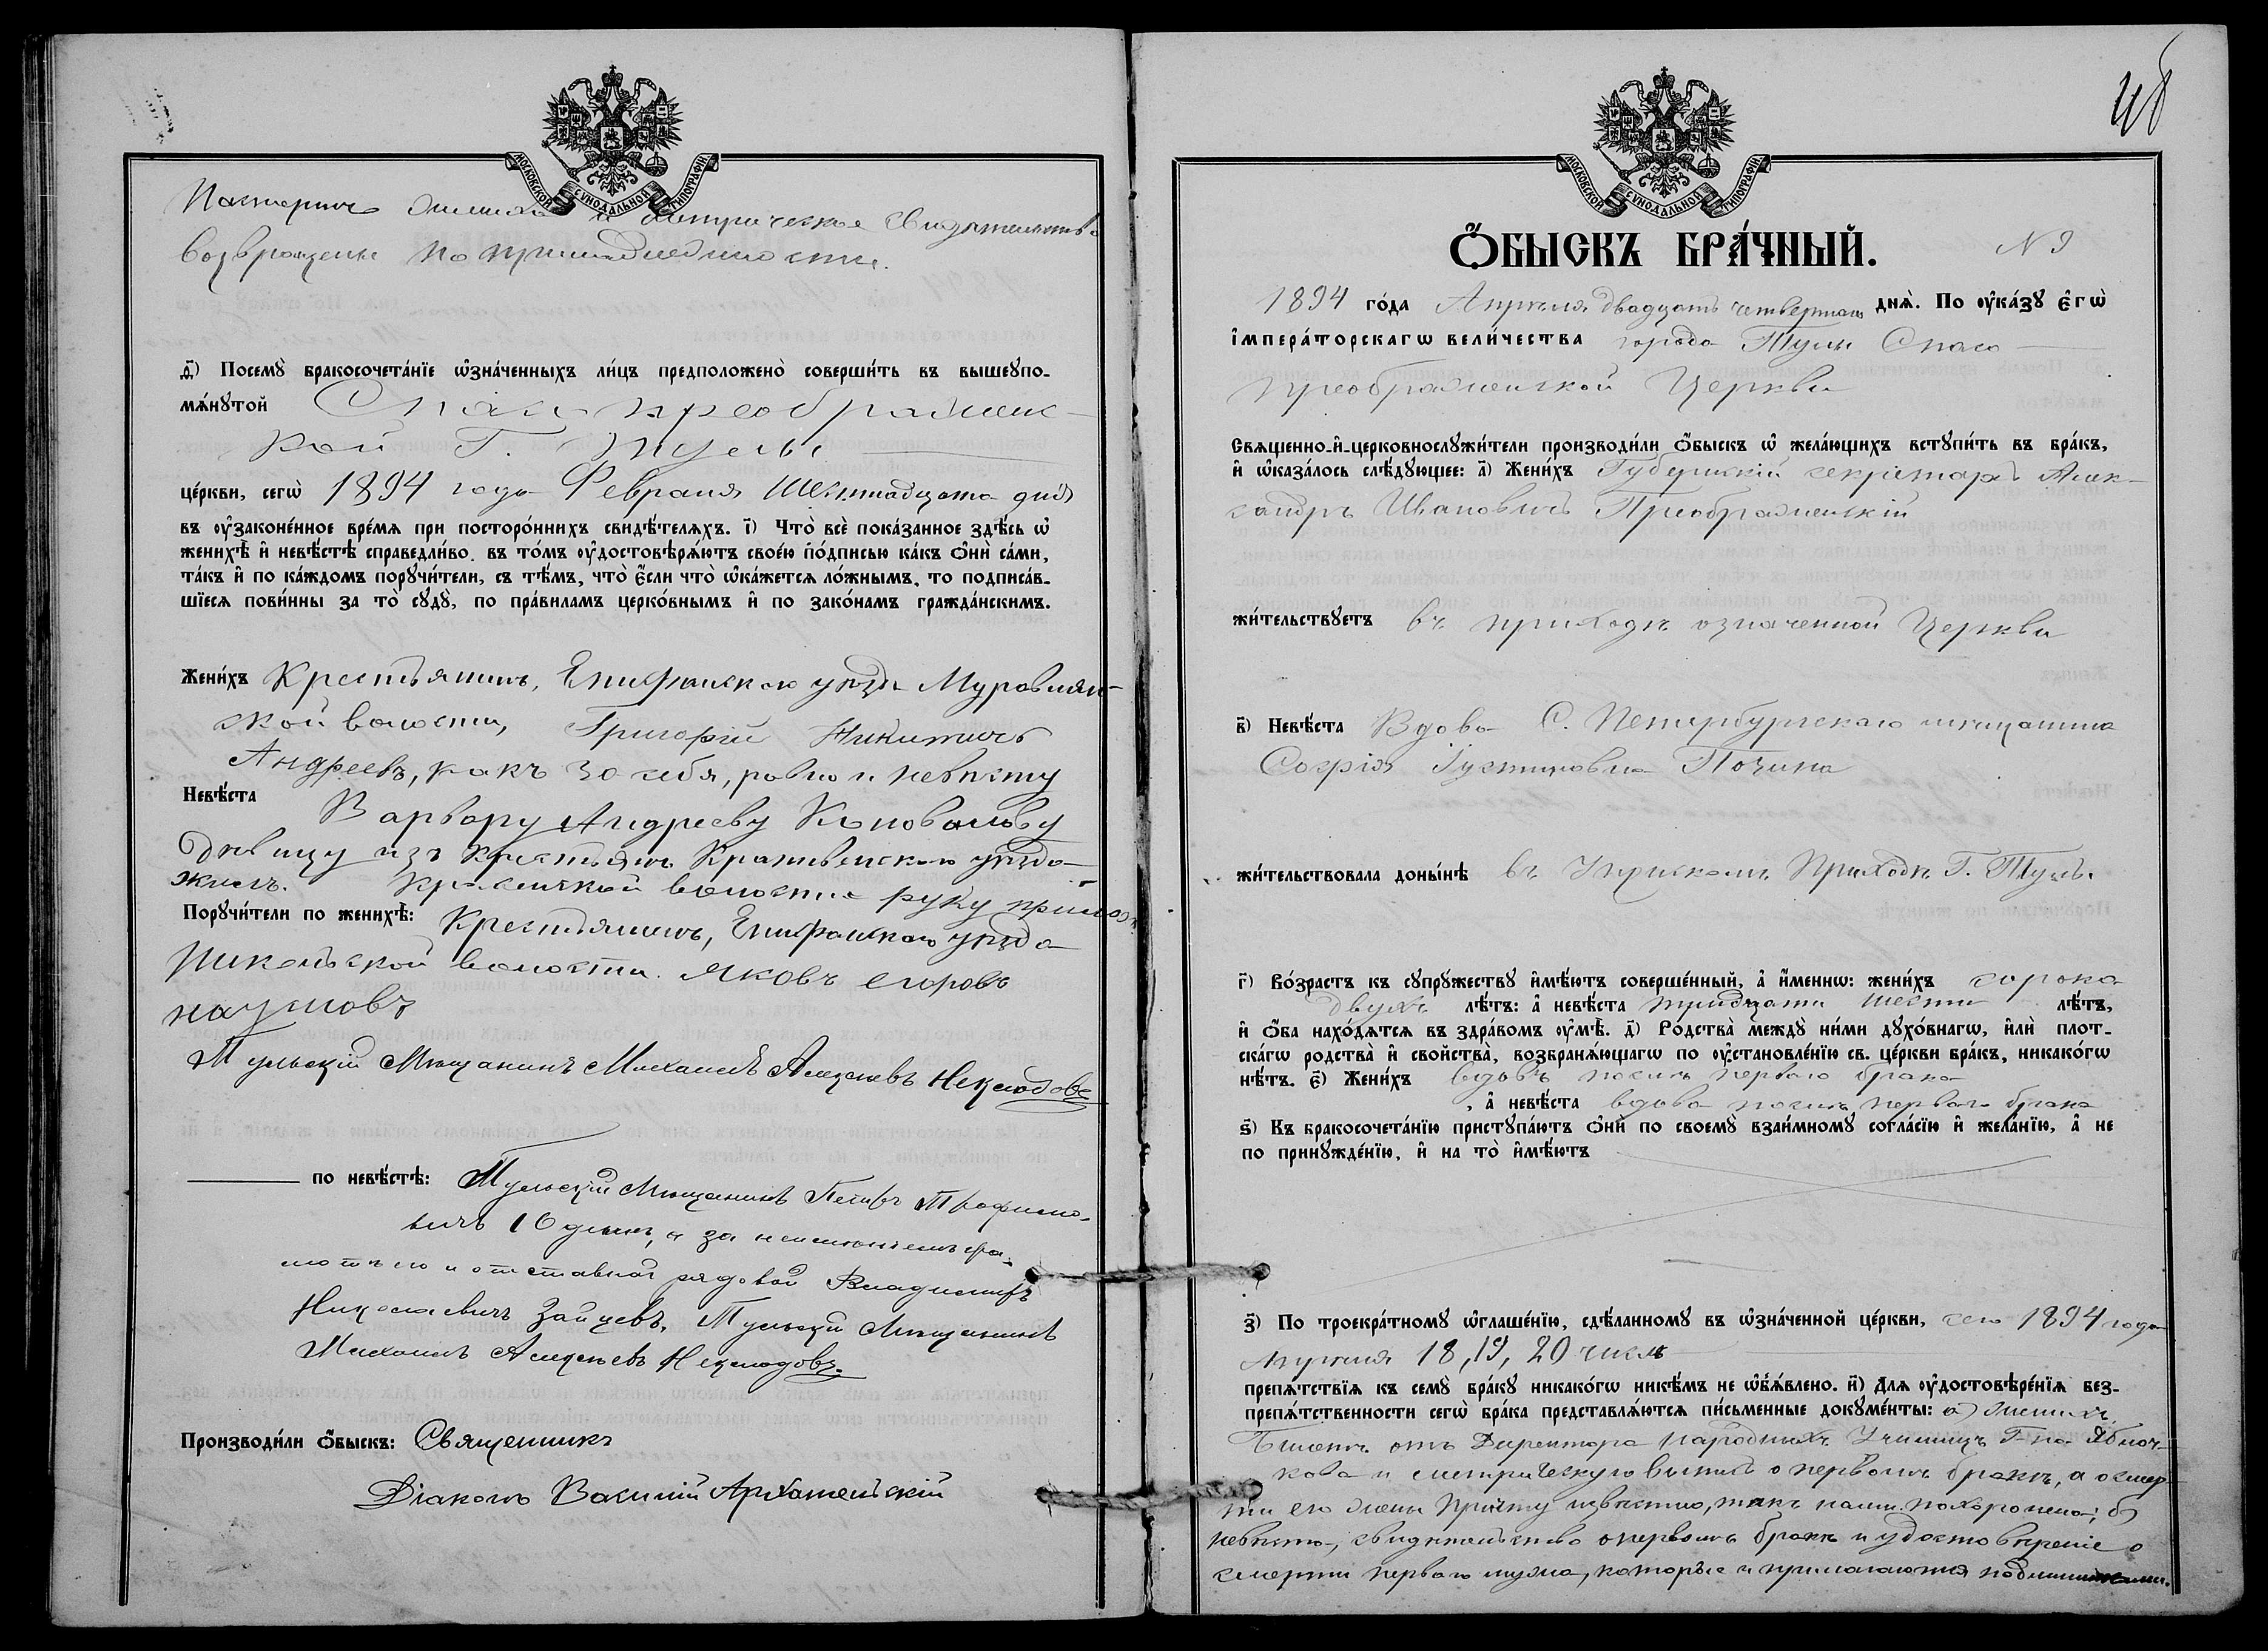 МОСКОВСКОЙ СѴНОДАЛЬНОЙ ТИПОГРАФІИ
Паспортъ жениха и метрическое свидѣтельство
возвращены по принадлежности.
ѳ҃) Посемꙋ̀ бракосочета́нїе ѡ҆зна́ченныхъ ли́цъ предположено̀ соверши́ть въ вышеꙋпо-
мѧ́нꙋтой Спасопреображенс-
кой Г. Тулы
це́ркви, сегѡ̀ 1894 года Февраля Шестнадцата дня
въ ᲂу҆законе́нное вре́мѧ при посторо́ннихъ свидѣ́телѧхъ. і҃) Что̀ всѐ пока́занное здѣ́сь ѡ҆
женихѣ̀ и҆ невѣ́стѣ справедли́во, въ то́мъ ᲂу҆достовѣрѧ́ютъ свое́ю по́дписью ка́къ ѻ҆нѝ са́ми,
та́къ и҆ по ка́ждомъ порꙋчи́тели, съ тѣ́мъ, что̀ є҆́сли что̀ ѡ҆ка́жетсѧ ло́жнымъ, то подписа́в-
шїесѧ пови́нны за то̀ сꙋдꙋ̀, по пра́виламъ церко́внымъ и҆ по зако́намъ гражда́нскимъ.
Жени́хъ Крестьянинъ, Епифанскаго уѣзда Муравлян-
ской волости, Григорій Никитинъ
Андреевъ, какъ за себя, равно и невѣсту
Невѣ́ста Варвару Андрееву Коновалову
дѣвицу изъ крестьянъ Крапивенскаго уѣзда
волости руку прилож
жилъ.
Порꙋчи́тели по женихѣ̀: Крестьянинъ, Епифанскаго уѣзда
Никольской волости. Яковъ егоровъ
наумовъ
Тульскій Мѣщанинъ Михаилъ Алексѣевъ Неклюдовъ
по невѣ́стѣ: Тульскій Мѣщанинъ Петръ Трофимо-
вичъ Юдинъ, а за неимѣніемъ гра-
моты его и отставной рядовой Владиміръ
Николаевичъ Зайцевъ, Тульскій Мѣщанинъ
Михаилъ Алексѣевъ Неклюдовъ
Производи́ли ѻ҆́быскъ: Священникъ
Діаконъ Василій Архангельскій
МОСКОВСКОЙ СѴНОДАЛЬНОЙ ТИПОГРАФІИ
Ѻ҆́БЫСКЪ БРА́ЧНЫЙ. N 9
1894 го́да Апрѣля двадцать четвертаго днѧ̀. По ᲂу҆ка́зꙋ є҆гѡ̀
і҆мпера́торскагѡ вели́чества города Тулы Спасо
преображенской Церкви
Свѧщенно-и҆-церковнослꙋжи́тели производи́ли ѻ҆́быскъ ѡ҆ жела́ющихъ встꙋпи́ть въ бра́къ,
и҆ ѡ҆каза́лось слѣ́дꙋющее: а҃) Жени́хъ Губернскій секретарь Алек-
сандръ Ивановичъ Преображенскій
жи́тельствꙋетъ въ приходѣ означенной Церкви
в҃) Невѣ́ста Вдова С. Петербургскаго мѣщанина
Софія Іустиновна Позина
жи́тельствовала доны́нѣ въ приходѣ Г. Тулы
г҃) Во́зрастъ къ сꙋпрꙋ́жествꙋ и҆мѣ́ютъ соверше́нный, а҆ и҆́меннѡ: жени́хъ сорока
двухъ лѣ́тъ: а҆ невѣ́ста тридцати шести лѣ́тъ,
и҆ ѻ҆́ба нахо́дѧтсѧ въ здра́вомъ ᲂу҆мѣ̀. д҃) Ро́дства междꙋ̀ ни́ми дꙋхо́внагѡ, и҆лѝ плот-
ска́гѡ родства̀ и҆ сво́йства, возбранѧ́ющагѡ по ᲂу҆становле́нїю св. це́ркви бра́къ, никако́гѡ
нѣ́тъ. є҃) Жени́хъ вдовъ послѣ перваго брака
, а҆ невѣ́ста вдова послѣ перваго брака
ѕ҃) Къ бракосочета́нїю пристꙋпа́ютъ ѻ҆нѝ по своемꙋ̀ взаи́мномꙋ согла́сїю и҆ жела́нїю, а҆ не
по принꙋжде́нїю, и҆ на то̀ и҆мѣ́ютъ
з҃) По троекра́тномꙋ ѡ҆глаше́нїю, сдѣ́ланномꙋ въ ѡ҆зна́ченной це́ркви, сего 1894 года
Апрѣля 18, 19, 20 числъ
препѧ́тствїѧ къ семꙋ̀ бра́кꙋ никако́гѡ никѣ́мъ не ѡ҆б̾ѧ́влено. и҃) Длѧ ᲂу҆достовѣре́нїѧ без-
препѧ́тственности сегѡ̀ бра́ка представлѧ́ютсѧ пи́сьменные докꙋме́нты: а) жениха
Билетъ отъ Директора народныхъ Училищъ Г-на Яблоч-
кова и метрическую выпись о первомъ бракѣ, а о смер-
ти его жены Причту извѣстно, такъ какъ похоронена; б)
невѣсты, свидѣтельство о первомъ бракѣ и удостовѣреніе о
смерти перваго мужа, которые и прилагаются